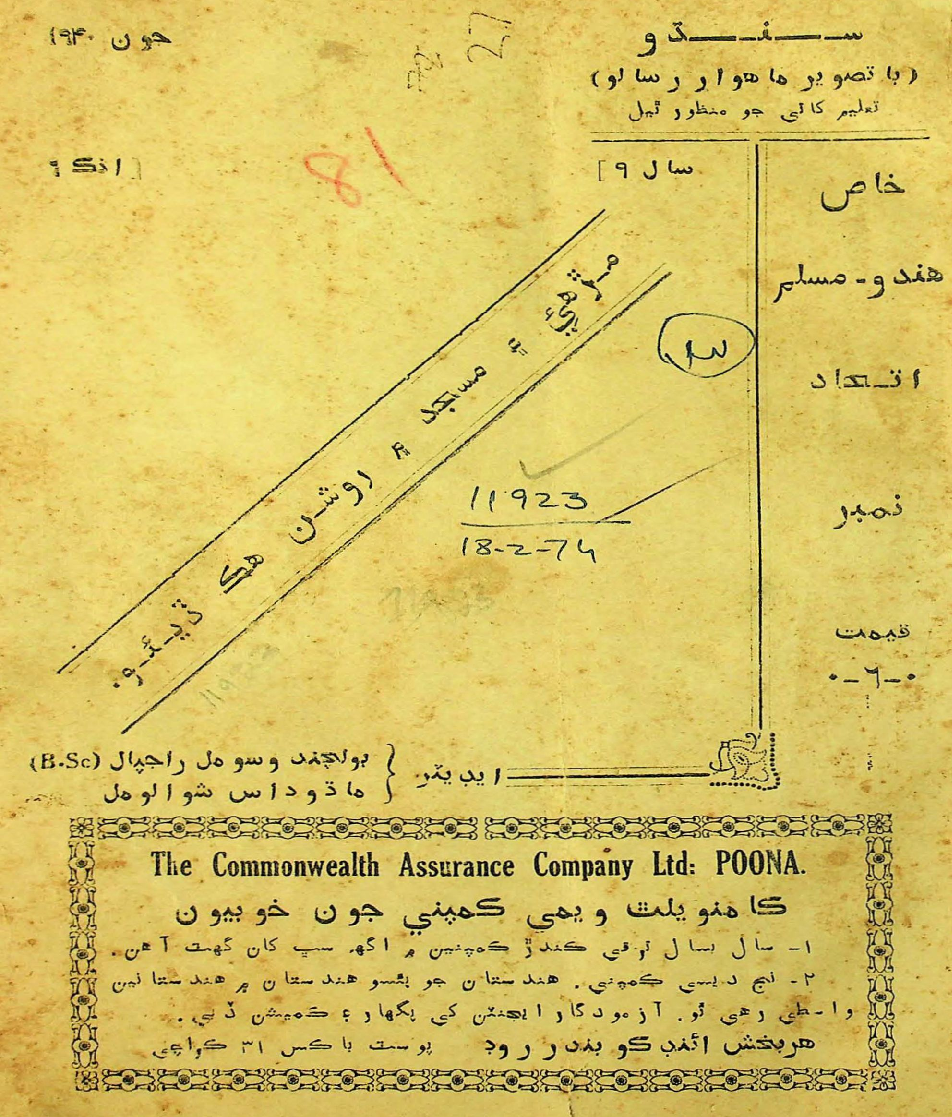 سنڌو
جون ١٩٤٠
27
(با تصوير ماهوار رسالو)
تعليم کاتي جو منظور ٿيل
سال ٩]
[انڪ ٩
81
خاص
هندو-مسلم
اتحاد
نمبر
قيمت
٠-٦-٠
مڙهيءَ ۽ مسجد ۾ روشن هڪ ڏيئو.
11923
18-2-74
ايڊيٽر
ٻولچند وسومل راجپال (B.Sc)
ماڌوداس شوالومل
The Commonwealth Assurance Company Ltd: POONA.
ڪامنويلٿ ويمي ڪمپني جون خوبيون
١- سال بسال ترقي ڪندڙ ڪمپنين ۾ اگهه سڀ کان گهٽ آهن.
٢- نج ديسي ڪمپني. هندستان جو پئسو هندستان ۾ هندستانين
واسطي رهي ٿو. آزمودگار ايجنٽن کي پگهار ۽ ڪميشن ڏبي.
هربخش ائنڊ ڪو بندر روڊ پوسٽ باڪس ٣١ ڪراچي